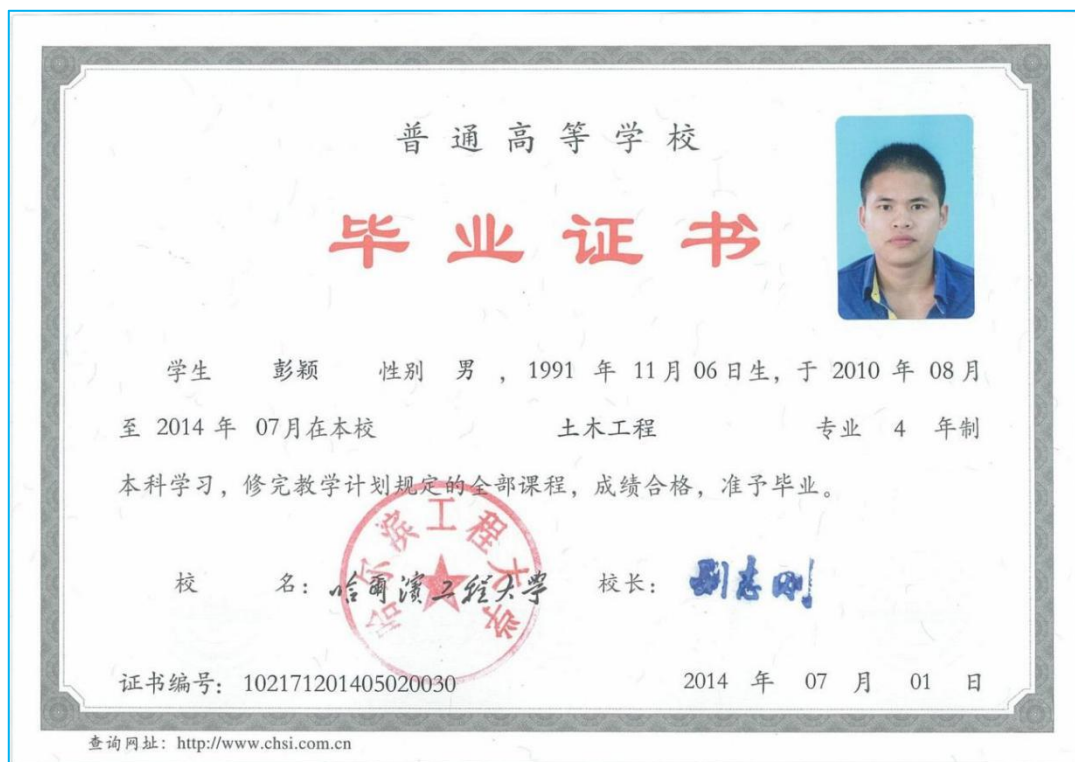 普通高等学校
毕业证书
学生 彭颖 性别 男 , 1991 年 11月 06日生, 于 2010 年 08月
至 2014 年 07月在本校 土木工程 专业 4 年制
本科学习, 修完教学计划规定的全部课程, 成绩合格, 准予毕业。
哈尔滨工程大学
校 名: 哈爾濱工程大学 校长: 刘志刚
证书编号: 102171201405020030 2014 年 07 月 01 日
查询网址: http://www.chsi.com.cn